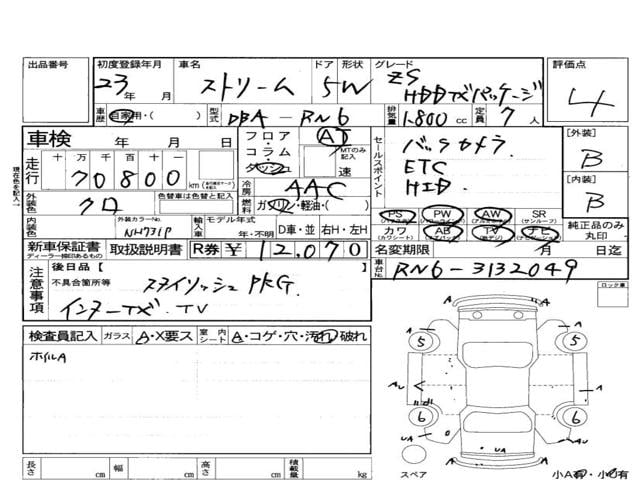 出品番号
初度登録年月 23年 月
車名 ストリーム
ドア 形状 5W
グレード ZS HDDナビパッケージ
評価点 4
車歴 自家用・( )
型式 DBA-RN6
排気量 1800 cc
定員 7人
車検 年 月 日
フロア・コラム・ダッシュ
AT
MTのみ記入
速
セールスポイント
バックカメラ
ETC
HID
[外装] B
[内装] B
現在色を記入
走行 十 万 千 百 十 一
70800 km
冷房 AAC
外装色 クロ
色替車は色替前色
燃料 ガソリン・軽油・( )
PS PW AW SR
(サンルーフ)
カワ AB TV ナビ
(カワシート)
純正品のみ丸印
内装色
外装カラーNo. NH731P
輸入車 モデル年式 年・不明
D車・並 右H・左H
新車保証書
ディーラー捺印あるもの
取扱説明書
R券 ¥ 12,070
名変期限 月 日迄
車台No. RN6-3132049
注意事項
後日品 [ ]
不具合箇所等 スタイリッシュPKG.
インターナビ TV
ロック車
検査員記入 ガラス A・X要ス 室内シート A・コゲ・穴・汚れ・破れ
ホイルA
A
5 5
A
AU
A
6 6
UA
A
UA
A
スペア
小A有・小U有
長さ cm 幅 cm 高さ cm 積載量 kg